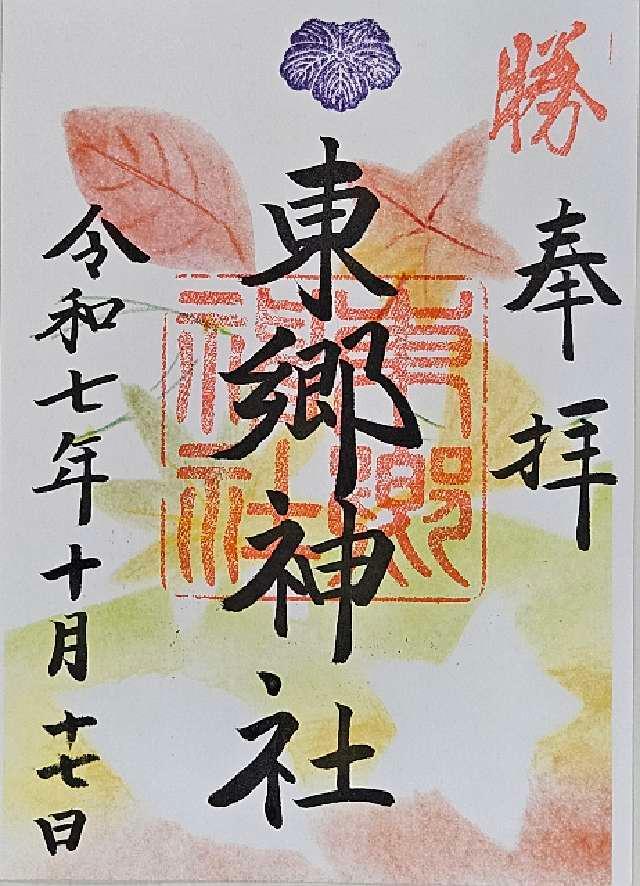 勝
奉拝
東郷神社
東郷神社
令和七年十月十七日